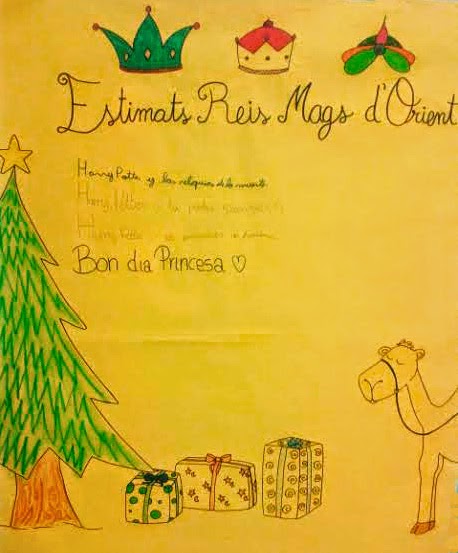 Estimats Reis Mags d'Orient
Harry Potter y las reliquias de la muerte
Harry Potter y la piedra
Harry Potter
Bon dia Princesa ♡